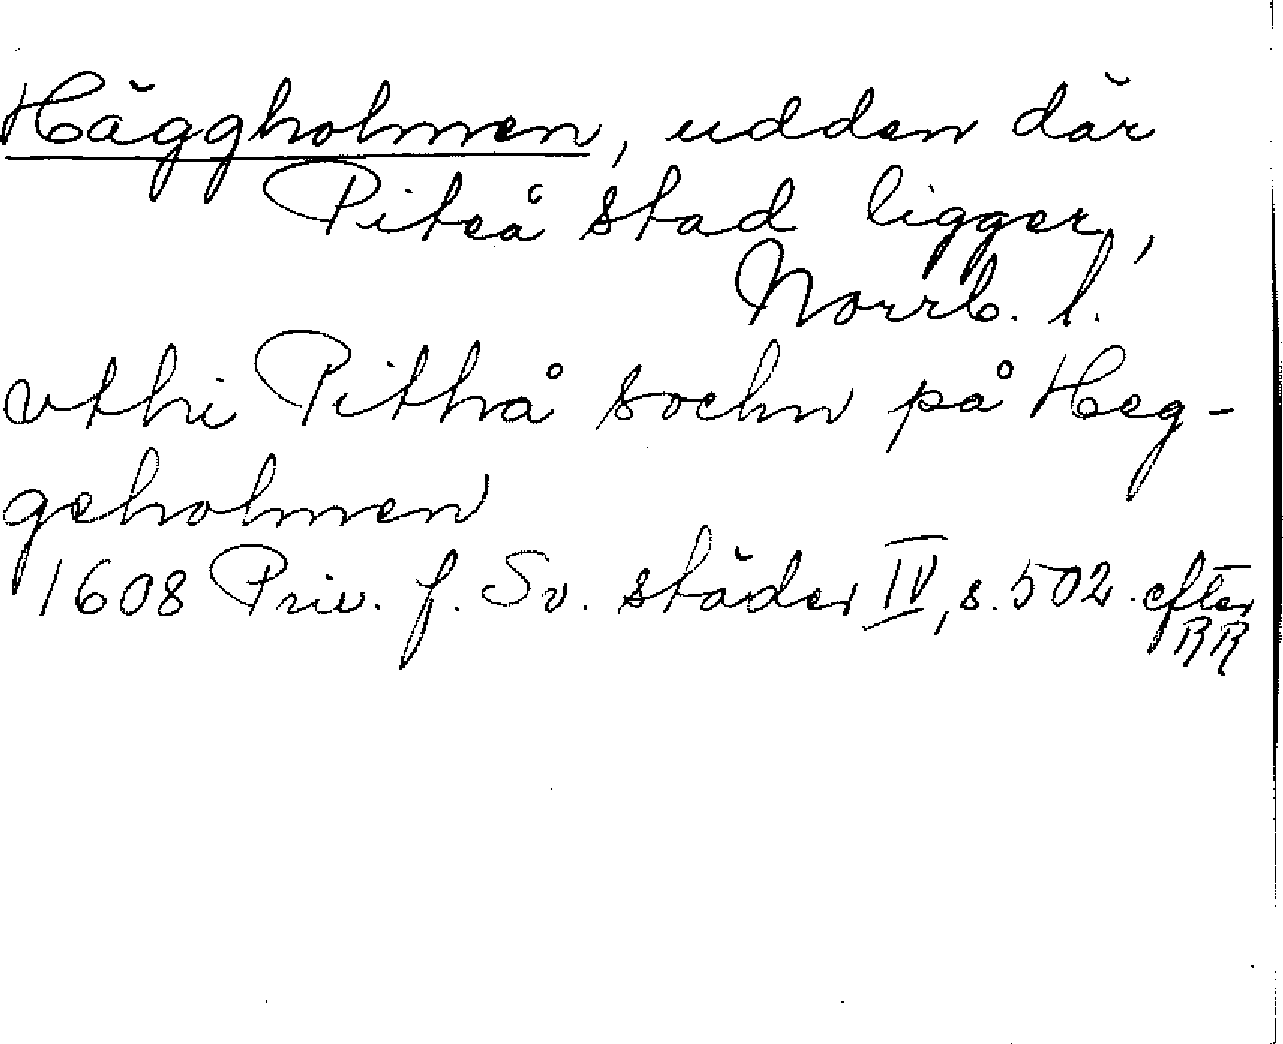 Häggholmen, udden där
Piteå stad ligger,
Norrb. l.
vthi Pithå sochn på Heg-
geholmen
1608 Priv. f. Sv. städer IV, s. 502 efter
RR